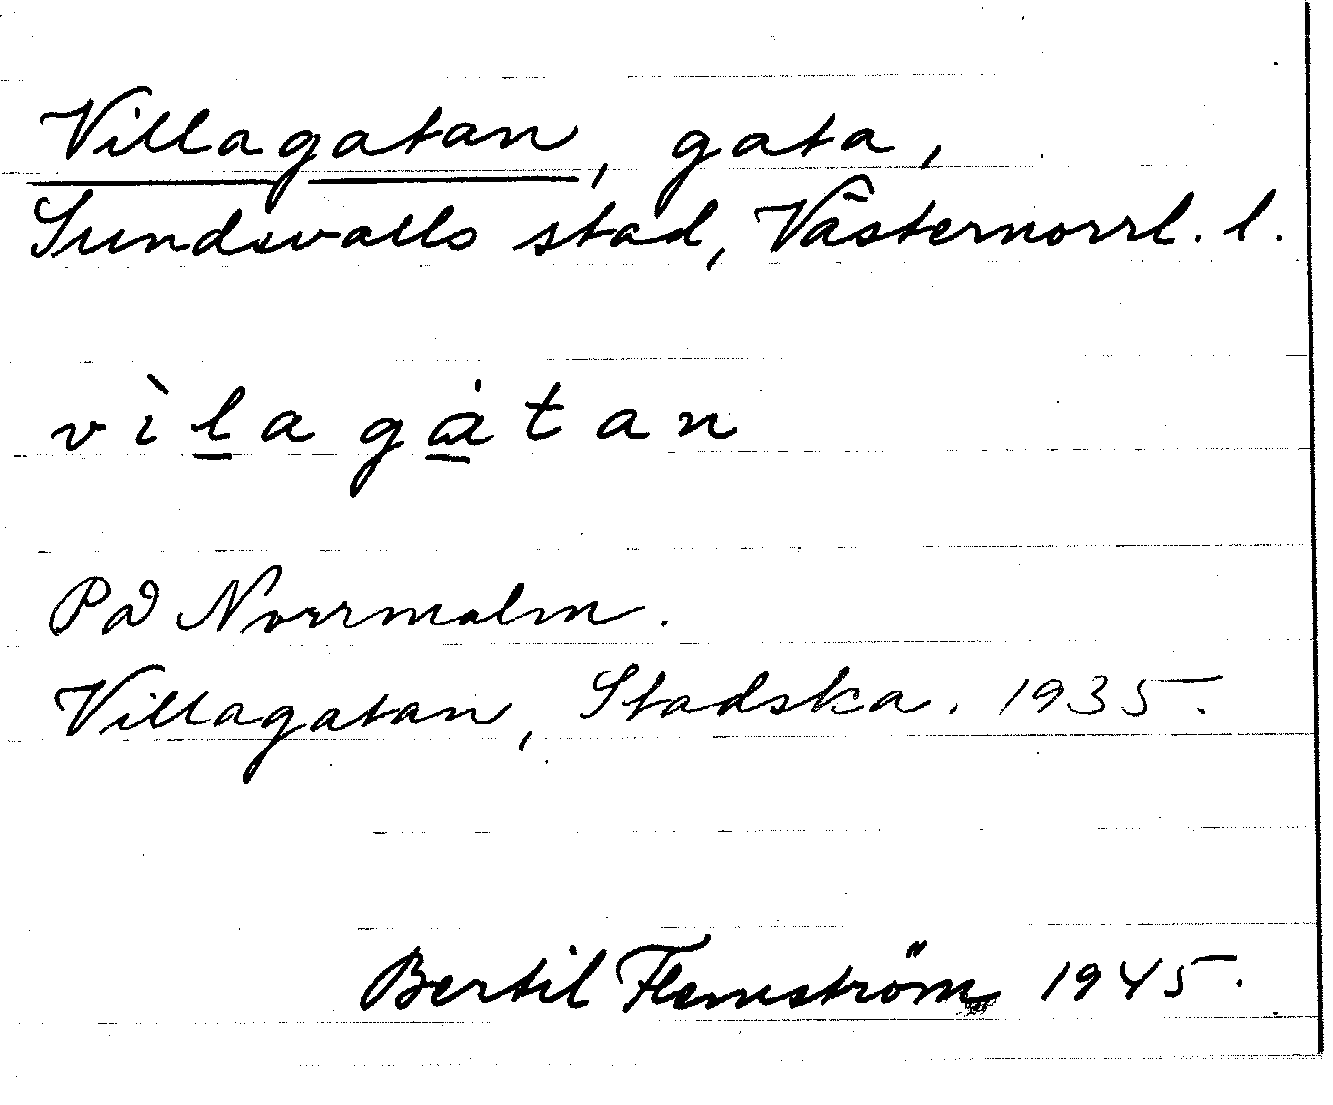 Villagatan, gata,
Sundsvalls stad, Västernorrl. l.
vìlagɑ̇tan
På Norrmalm.
Villagatan, Stadska. 1935.
Bertil Flemström 1945.